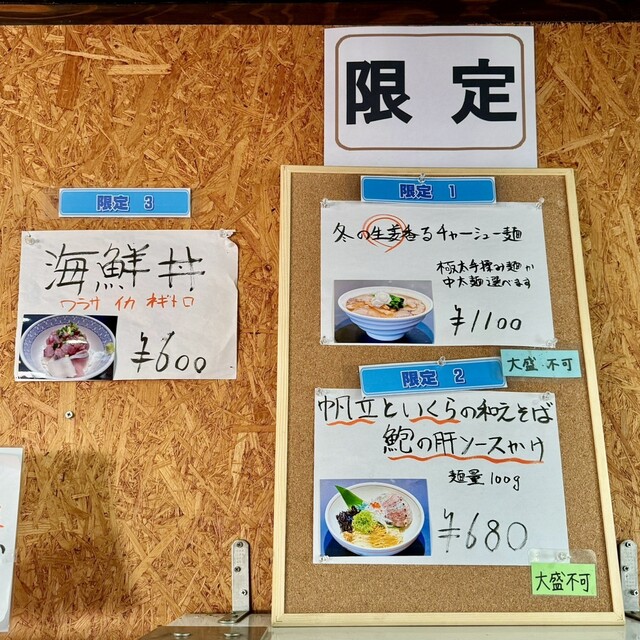 限定
限定 1
冬の生姜香るチャーシュー麺
極太手揉み麺か
中太麺選べます
¥1100
大盛 不可
限定 2
帆立といくらの和えそば
鮑の肝ソースかけ
麺量 100g
¥680
大盛不可
限定 3
海鮮丼
ワラサ イカ ネギトロ
¥600